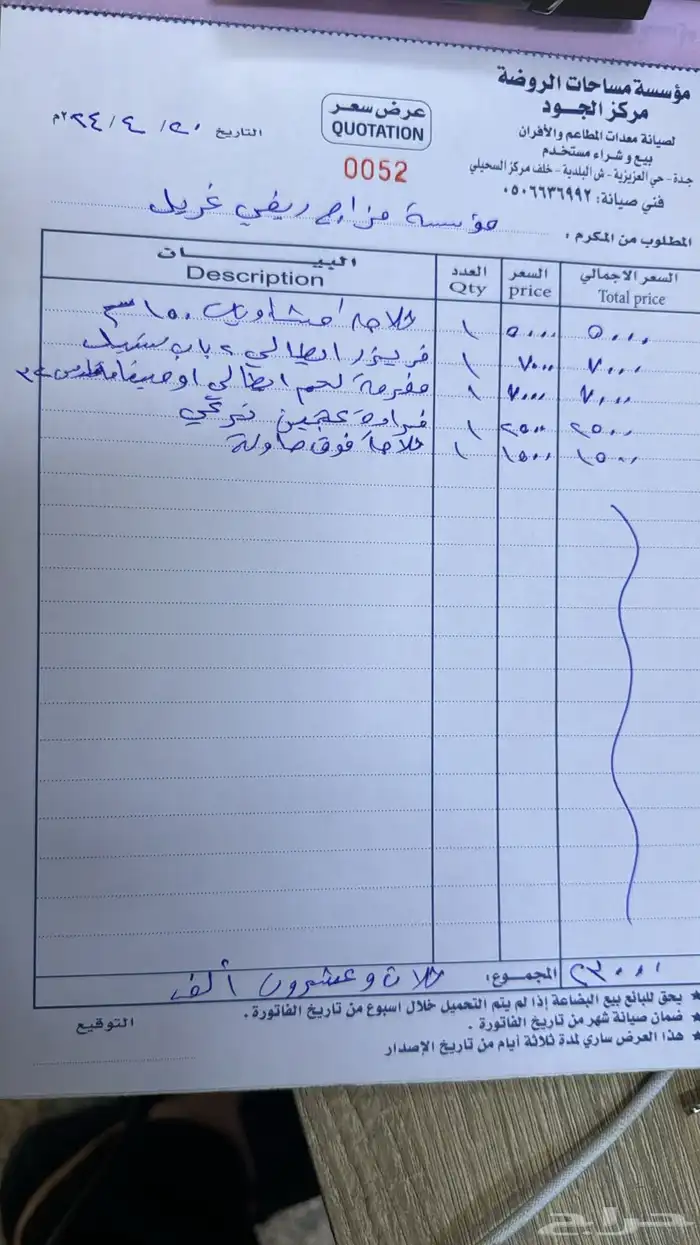 مؤسسة مساحات الروضة
مركز الجود
لصيانة معدات المطاعم والأفران
بيع وشراء مستخدم
جدة - حي العزيزية - ش البلدية - خلف مركز السحيلي
فني صيانة: ٠٥٠٦٦٣٦٩٩٢
عرض سعر
QUOTATION
0052
التاريخ ٢٠ / ٤ / ٢٠٢٤م
المطلوب من المكرم : مؤسسة مزاج ريفي غريل
البيــــــــات Description العدد Qty السعر price السعر الاجمالي Total price
ثلاجة مشاوي ١٥٠ سم ١ ٥٠٠٠ ٥٠٠٠
فريزر ايطالي ٢ باب ستيل ١ ٧٠٠٠ ٧٠٠٠
مفرمة لحم ايطالي اوميغا مقاس ٣٢ ١ ٧٠٠٠ ٧٠٠٠
فرادة عجين تركي ١ ٢٥٠٠ ٢٥٠٠
ثلاجة فوق طاولة ١ ١٥٠٠ ١٥٠٠
المجموع: ثلاث وعشرون ألف ٢٣٠٠٠
★ يحق للبائع بيع البضاعة إذا لم يتم التحميل خلال اسبوع من تاريخ الفاتورة .
★ ضمان صيانة شهر من تاريخ الفاتورة .
★ هذا العرض ساري لمدة ثلاثة أيام من تاريخ الإصدار
التوقيع
حراج